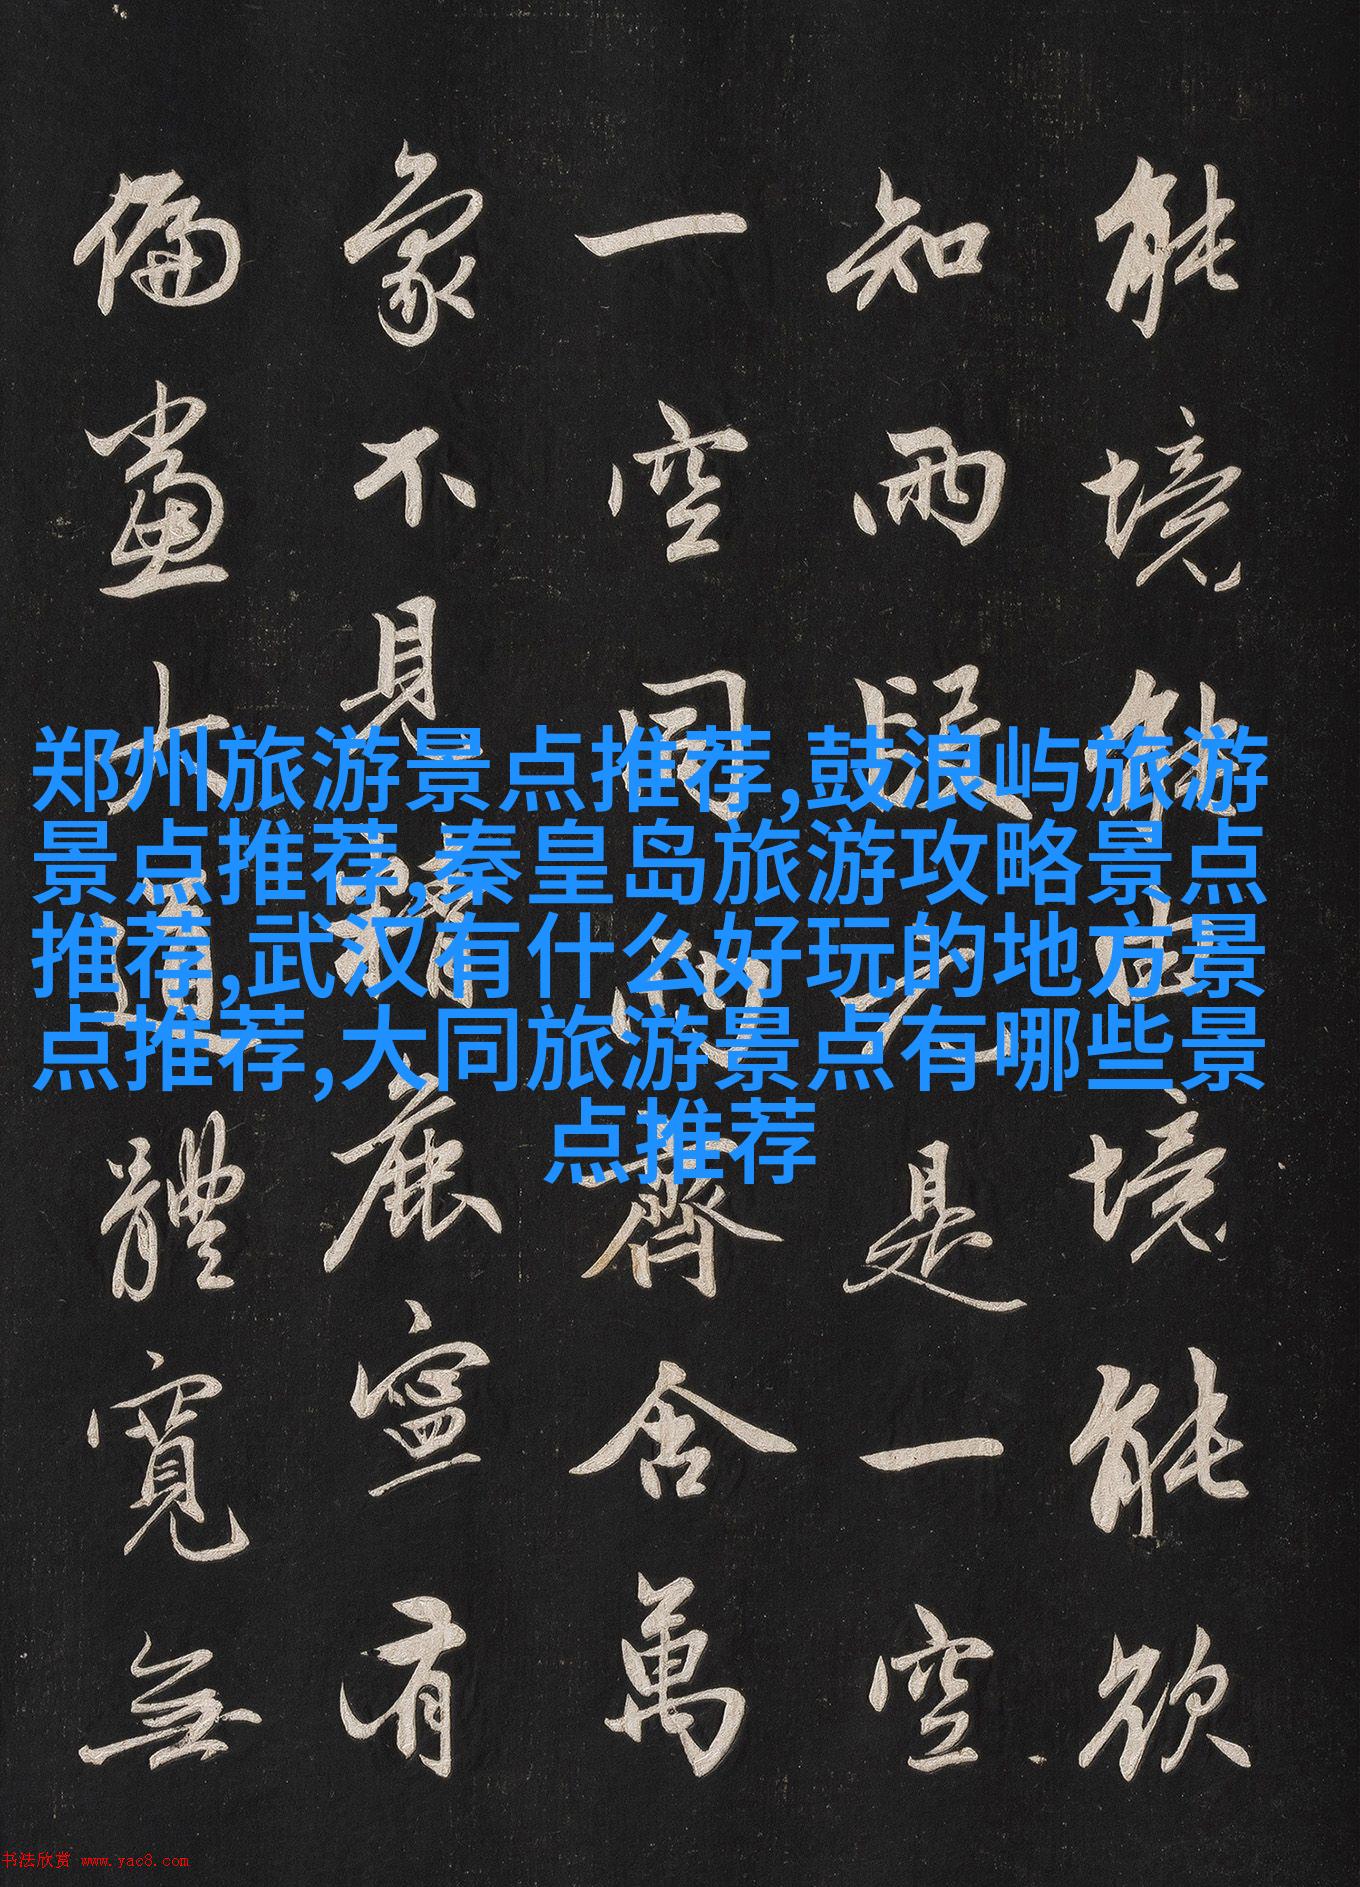 能境能由境能欲
知兩段元是一空
一空同兩齊含萬
象不見精麁寧有
偏黨大道體寬無
郑州旅游景点推荐,鼓浪屿旅游
景点推荐,秦皇岛旅游攻略景点
推荐,武汉有什么好玩的地方景
点推荐,大同旅游景点有哪些景
点推荐
书法欣赏 www.yac8.com